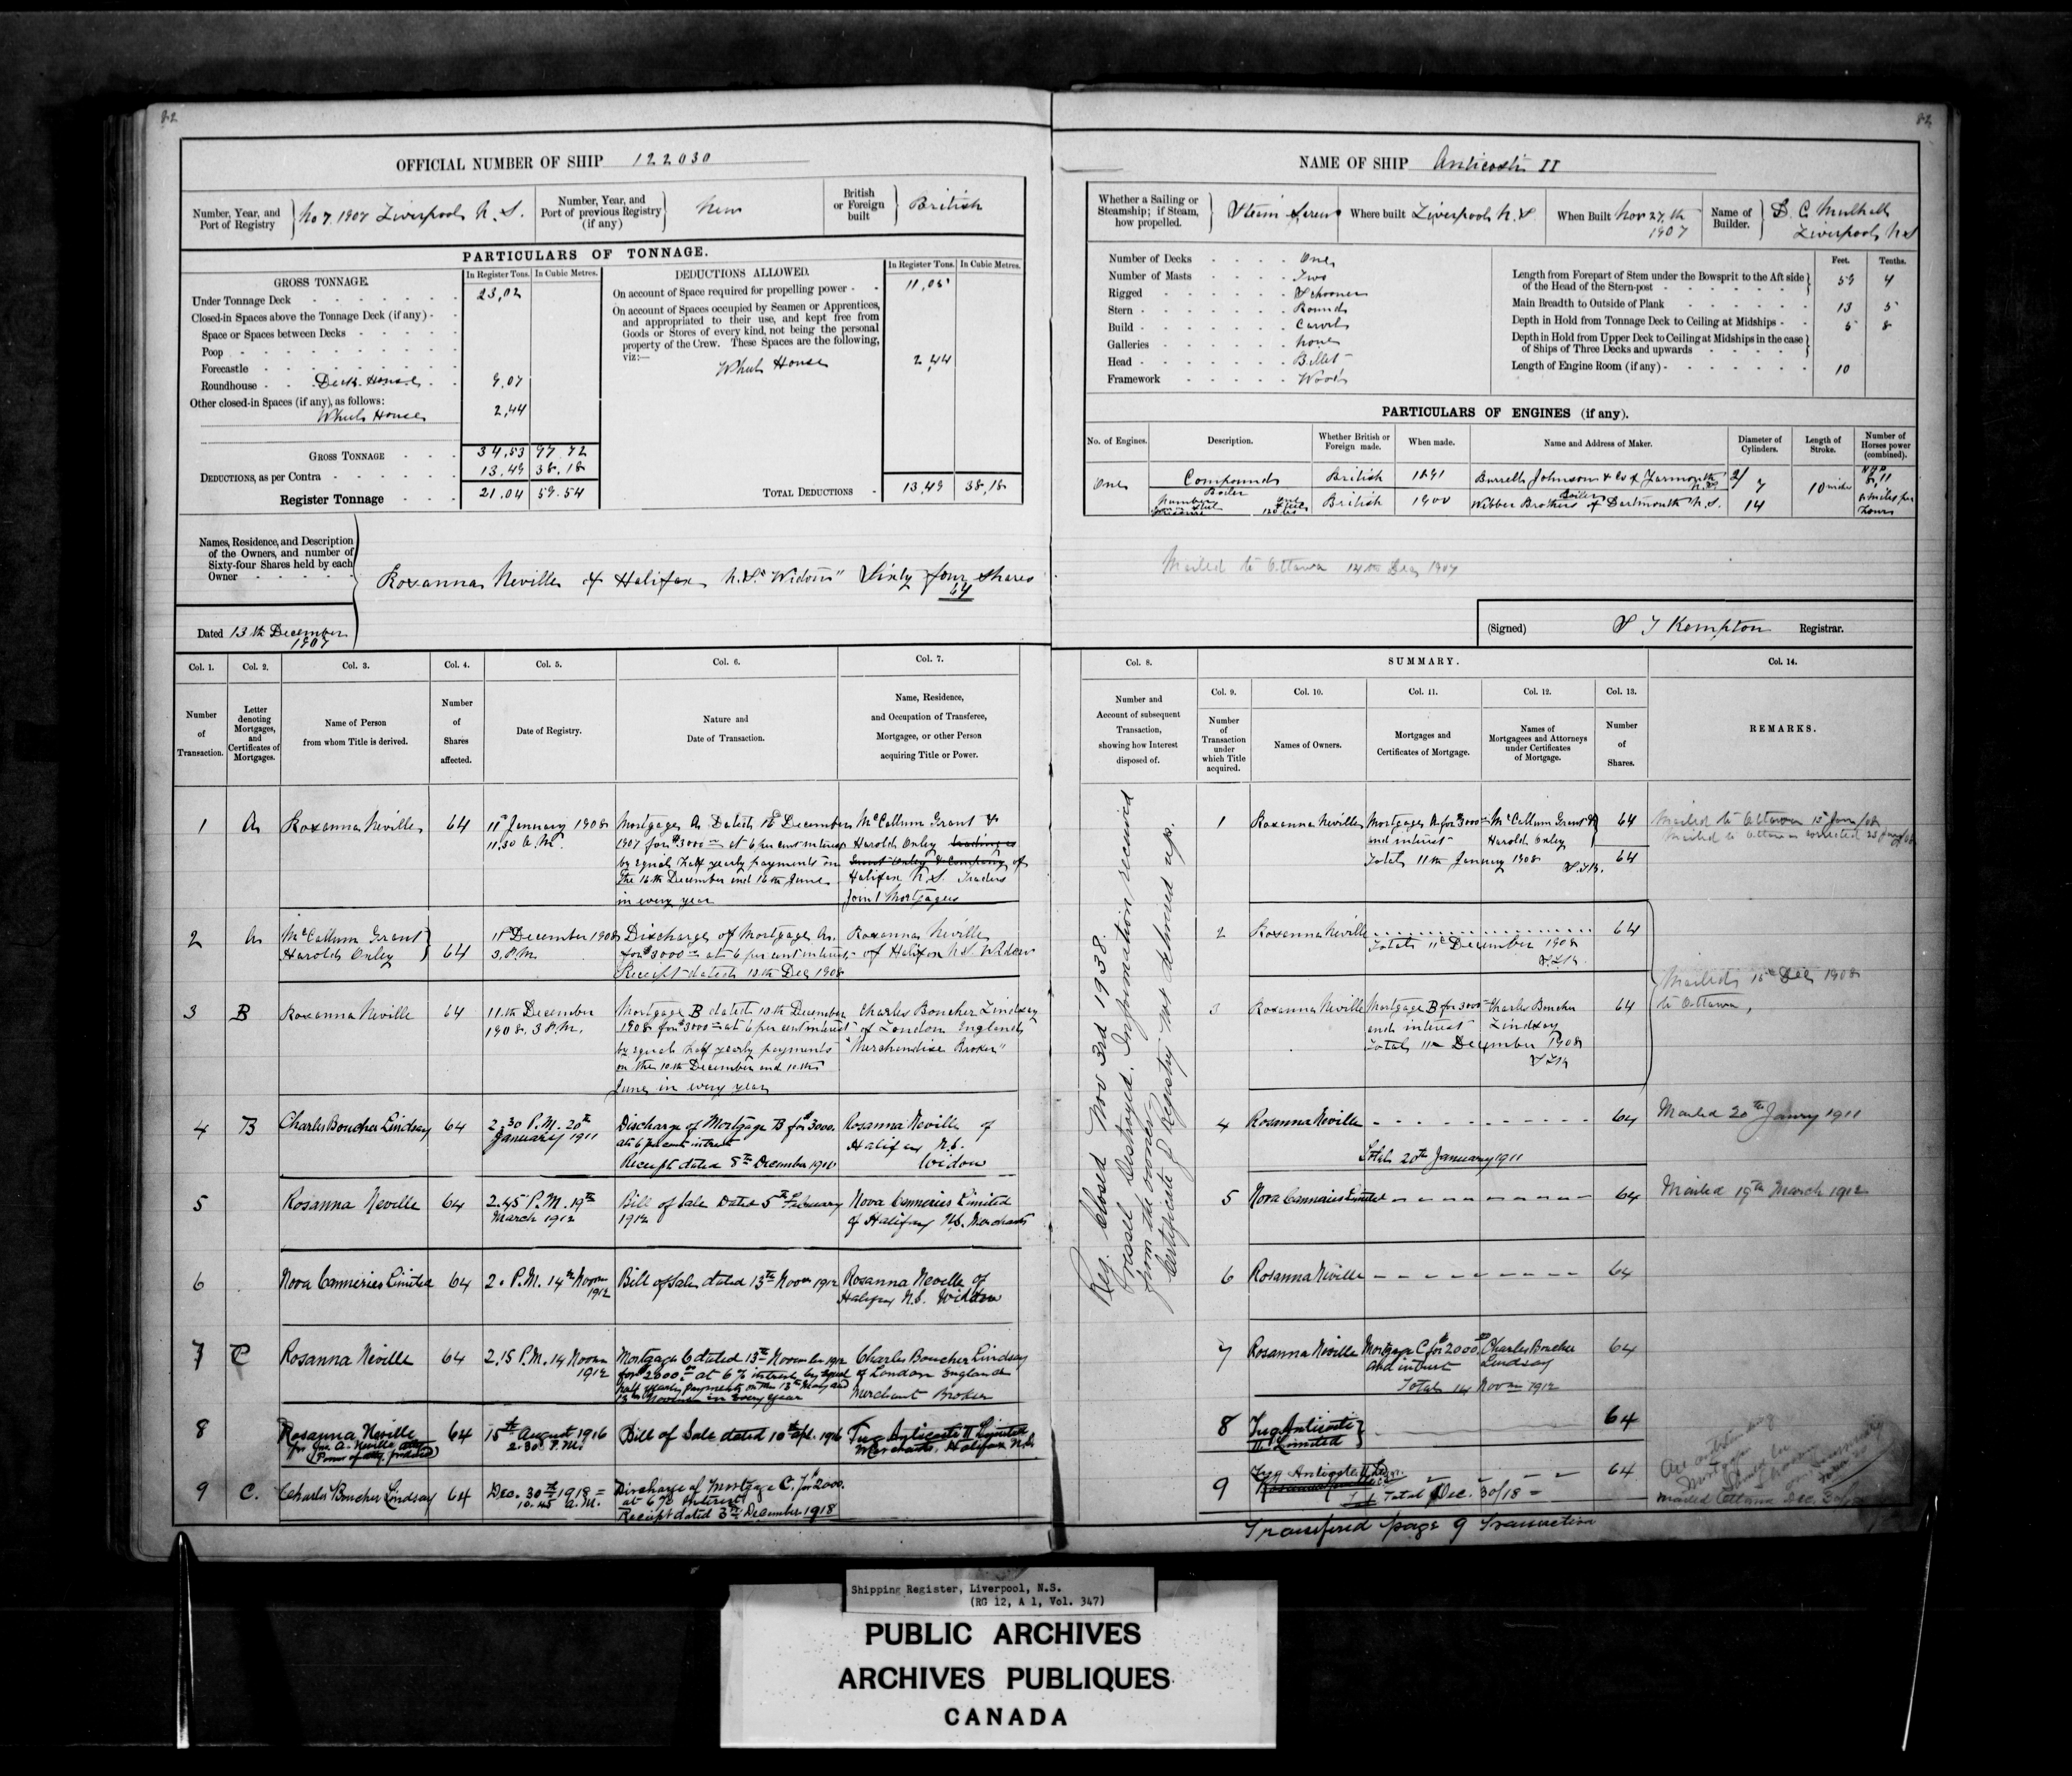 82
OFFICIAL NUMBER OF SHIP 122030
Number, Year, and Port of Registry } No 7. 1907 Liverpool N.S.
Number, Year, and Port of previous Registry (if any) } New
British or Foreign built } British
PARTICULARS OF TONNAGE.
GROSS TONNAGE.
In Register Tons. In Cubic Metres.
Under Tonnage Deck 23,02
Closed-in Spaces above the Tonnage Deck (if any) -
Space or Spaces between Decks
Poop
Forecastle
Roundhouse - Deck House 9.07
Other closed-in Spaces (if any), as follows:
Wheel House 2,44
GROSS TONNAGE 34,53 97.72
DEDUCTIONS, as per Contra 13,49 38,18
Register Tonnage 21,04 59.54
DEDUCTIONS ALLOWED.
In Register Tons. In Cubic Metres.
On account of Space required for propelling power - 11,05
On account of Spaces occupied by Seamen or Apprentices,
and appropriated to their use, and kept free from
Goods or Stores of every kind, not being the personal
property of the Crew. These Spaces are the following,
viz:—
Wheel House 2,44
TOTAL DEDUCTIONS 13,49 38,18
Names, Residence, and Description
of the Owners, and number of
Sixty-four Shares held by each
Owner
Roxanna Neville of Halifax N.S. "Widow" Sixty four shares
64
Dated 13th December
1907
Col. 1. Col. 2. Col. 3. Col. 4. Col. 5. Col. 6. Col. 7.
Number of Transaction.
Letter denoting Mortgages, and Certificates of Mortgages.
Name of Person from whom Title is derived.
Number of Shares affected.
Date of Registry.
Nature and Date of Transaction.
Name, Residence, and Occupation of Transferee, Mortgagee, or other Person acquiring Title or Power.
1 A Roxanna Neville 64 11th January 1908 11,30 A.M.
Mortgage A Dated 16th December
1907 for $3000 at 6 per cent interest
by equal half yearly payments on
the 16th December and 16th June
in every year
McCallum Grant &
Harold Oxley trading as
Grant Oxley & Company of
Halifax N.S. Traders
Joint Mortgagees
2 A McCallum Grant
Harold Oxley } 64 11th December 1908 3.P.M.
Discharge of Mortgage A.
for $3000 at 6 per cent interest
Receipt dated 10th Dec 1908
Roxanna Neville
of Halifax N.S. Widow
3 B Roxanna Neville 64 11th December 1908. 3 P.M.
Mortgage B dated 10th December
1908 for $3000 at 6 per cent interest
by equal half yearly payments
on the 10th December and 10th
June in every year
Charles Boucher Lindsay
of London England
"Merchandise Broker"
4 B Charles Boucher Lindsay 64 2.30 P.M. 20th January 1911
Discharge of Mortgage B for $3000.
at 6 per cent interest
Receipt dated 8th December 1910
Rosanna Neville of
Halifax N.S.
Widow
5 Rosanna Neville 64 2.45 P.M. 19th March 1912
Bill of Sale Dated 5th February
1912
Nova Canneries Limited
of Halifax N.S. Merchants
6 Nova Canneries Limited 64 2. P.M. 14th Novem 1912
Bill of Sale dated 13th Novem 1912
Rosanna Neville of
Halifax N.S. Widow
7 C Rosanna Neville 64 2.15 P.M. 14 Novem 1912
Mortgage C dated 13th November 1912
for $2000. at 6% interest by equal
half yearly payments on the 13th May and
13th November in every year
Charles Boucher Lindsay
of London England
Merchant Broker
8 Rosanna Neville
per Jas. A. Neville atty
(Power of atty. produced) 64 15th August 1916 2.30 P.M.
Bill of Sale dated 10th Apl. 1916
Tug Anticosti II Limited
Merchants, Halifax N.S.
9 C. Charles Boucher Lindsay 64 Dec. 30th 1918 - 10.45 A.M.
Discharge of Mortgage C. for $2000.
at 6% interest
Receipt dated 3rd December 1918
82
NAME OF SHIP Anticosti II
Whether a Sailing or Steamship; if Steam, how propelled. } Steam Screw
Where built Liverpool N.S
When Built Nov 27th 1907
Name of Builder. } D. C. Mulhall Liverpool N.S
Number of Decks One
Number of Masts Two
Rigged Schooner
Stern Round
Build Carvel
Galleries None
Head Billet
Framework Wood
Feet. Tenths.
Length from Forepart of Stem under the Bowsprit to the Aft side of the Head of the Stern-post 59 4
Main Breadth to Outside of Plank 13 5
Depth in Hold from Tonnage Deck to Ceiling at Midships 5 8
Depth in Hold from Upper Deck to Ceiling at Midships in the case of Ships of Three Decks and upwards
Length of Engine Room (if any) 10
PARTICULARS OF ENGINES (if any).
No. of Engines. Description. Whether British or Foreign made. When made. Name and Address of Maker. Diameter of Cylinders. Length of Stroke. Number of Horses power (combined).
One Compound British 1891 Burrell Johnson & Co of Yarmouth N.S 7 10 inches
Boiler British 1900 Webber Brothers of Dartmouth N.S. 14
Mailed to Ottawa 14th Dec 1907
(Signed) S J Kempton Registrar.
Col. 8. SUMMARY. Col. 14.
Col. 9. Col. 10. Col. 11. Col. 12. Col. 13.
Number and Account of subsequent Transaction, showing how Interest disposed of.
Number of Transaction under which Title acquired.
Names of Owners.
Mortgages and Certificates of Mortgage.
Names of Mortgagees and Attorneys under Certificates of Mortgage.
Number of Shares.
REMARKS.
Reg. Closed Nov 3rd 1938.
Vessel Destroyed. Information received
from the owner.
Certificate of Registry not delivered up.
1 Roxanna Neville Mortgage A for $3000 and interest McCallum Grant & Harold Oxley 64
Total 11th January 1908 64
Mailed to Ottawa 15th Jany/08
2 Roxanna Neville 64
Total 11th December 1908
3 Roxanna Neville Mortgage B for 3000 and interest Charles Boucher Lindsay 64
Total 11th December 1908
Mailed 15th Dec 1908
to Ottawa,
4 Rosanna Neville 64
Total 20th January 1911
Mailed 20th Janry 1911
5 Nova Canneries Limited 64
Mailed 19th March 1912
6 Rosanna Neville 64
7 Rosanna Neville Mortgage C for $2000 and interest Charles Boucher Lindsay 64
Total 14 Novem 1912
8 Tug Anticosti II Limited } 64
9 Tug Anticosti II Ltd 64
Total Dec. 30/18 -
Mailed Ottawa Dec. 30/18
Transfered page 9 Transaction
Shipping Register, Liverpool, N.S.
(RG 12, A 1, Vol. 347)
PUBLIC ARCHIVES
ARCHIVES PUBLIQUES
CANADA